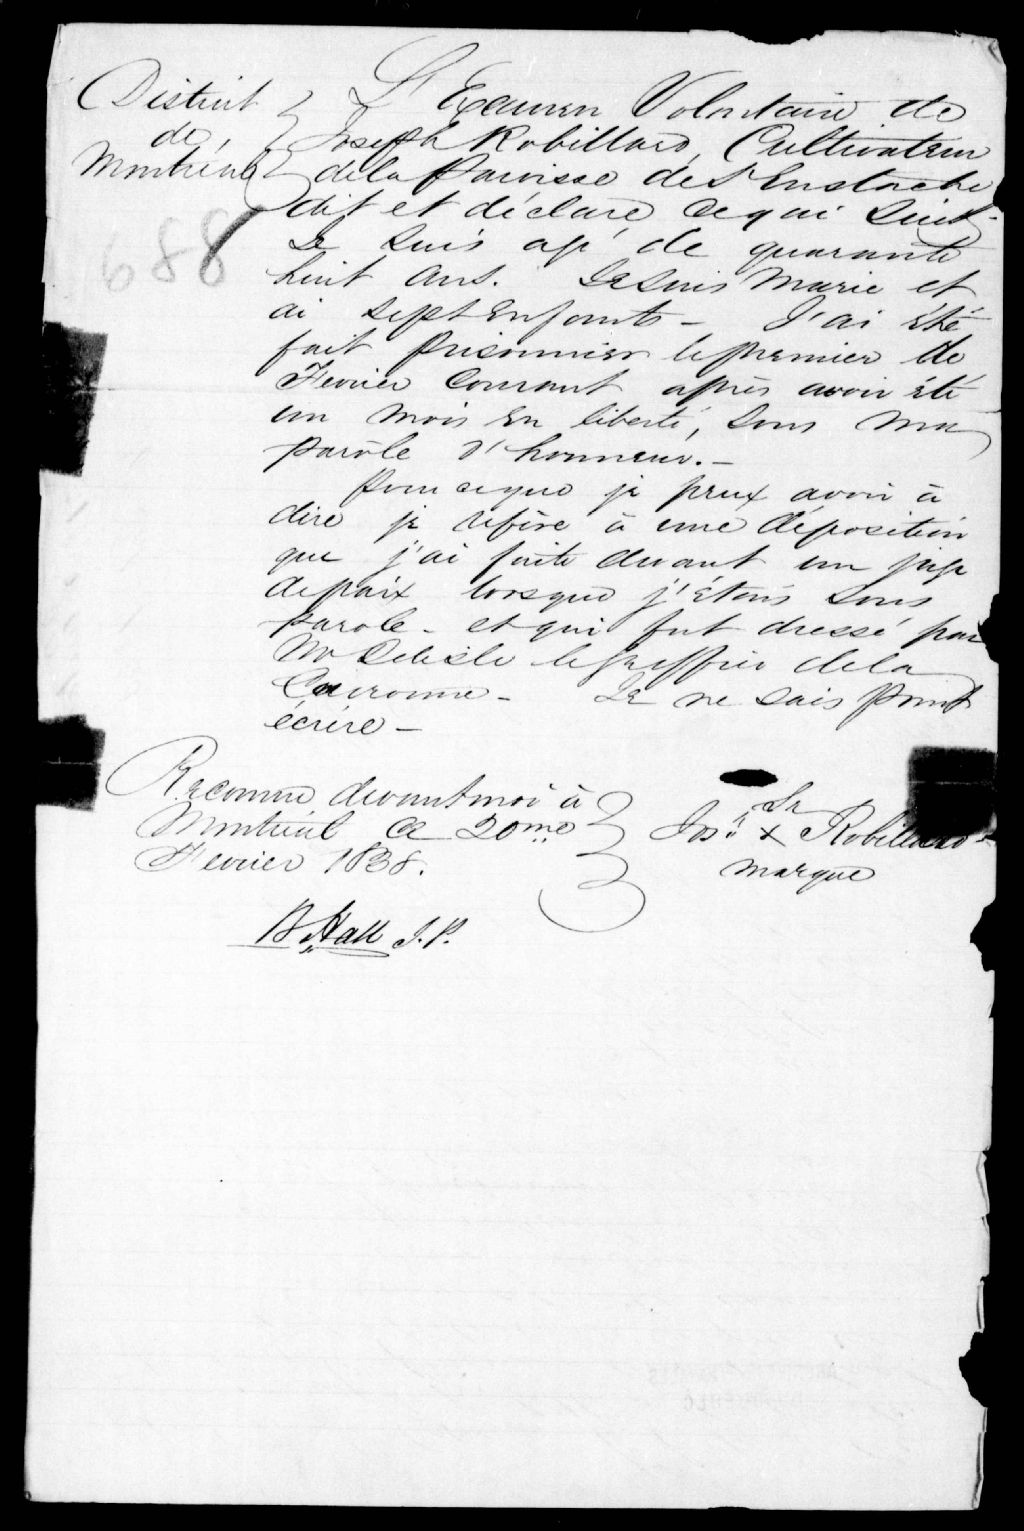 District
de
Montréal
L'Examen Volontaire de
Joseph Robillard, Cultivateur
de la Paroisse de St Eustache
dit et déclare ce qui suit.
688
Je suis agé de quarante
huit ans. Je suis Marié et
ai sept Enfants - J'ai été
fait prisonnier le premier de
Fevrier Courant après avoir été
un mois en liberté, sous ma
parôle d'honneur. -
Pour ce que je peux avoir à
dire je réfère à une déposition
que j'ai faite devant un juge
de paix lorsque j'étais sous
parole - et qui fut dressé par
Mr Delisle le greffier de la
Couronne - Je ne sais point
écrire -
Reconnu devant moi à
Montréal ce 20me
Fevrier 1838.
Sa
Jos. x Robillard
marque
B Hall J.P.